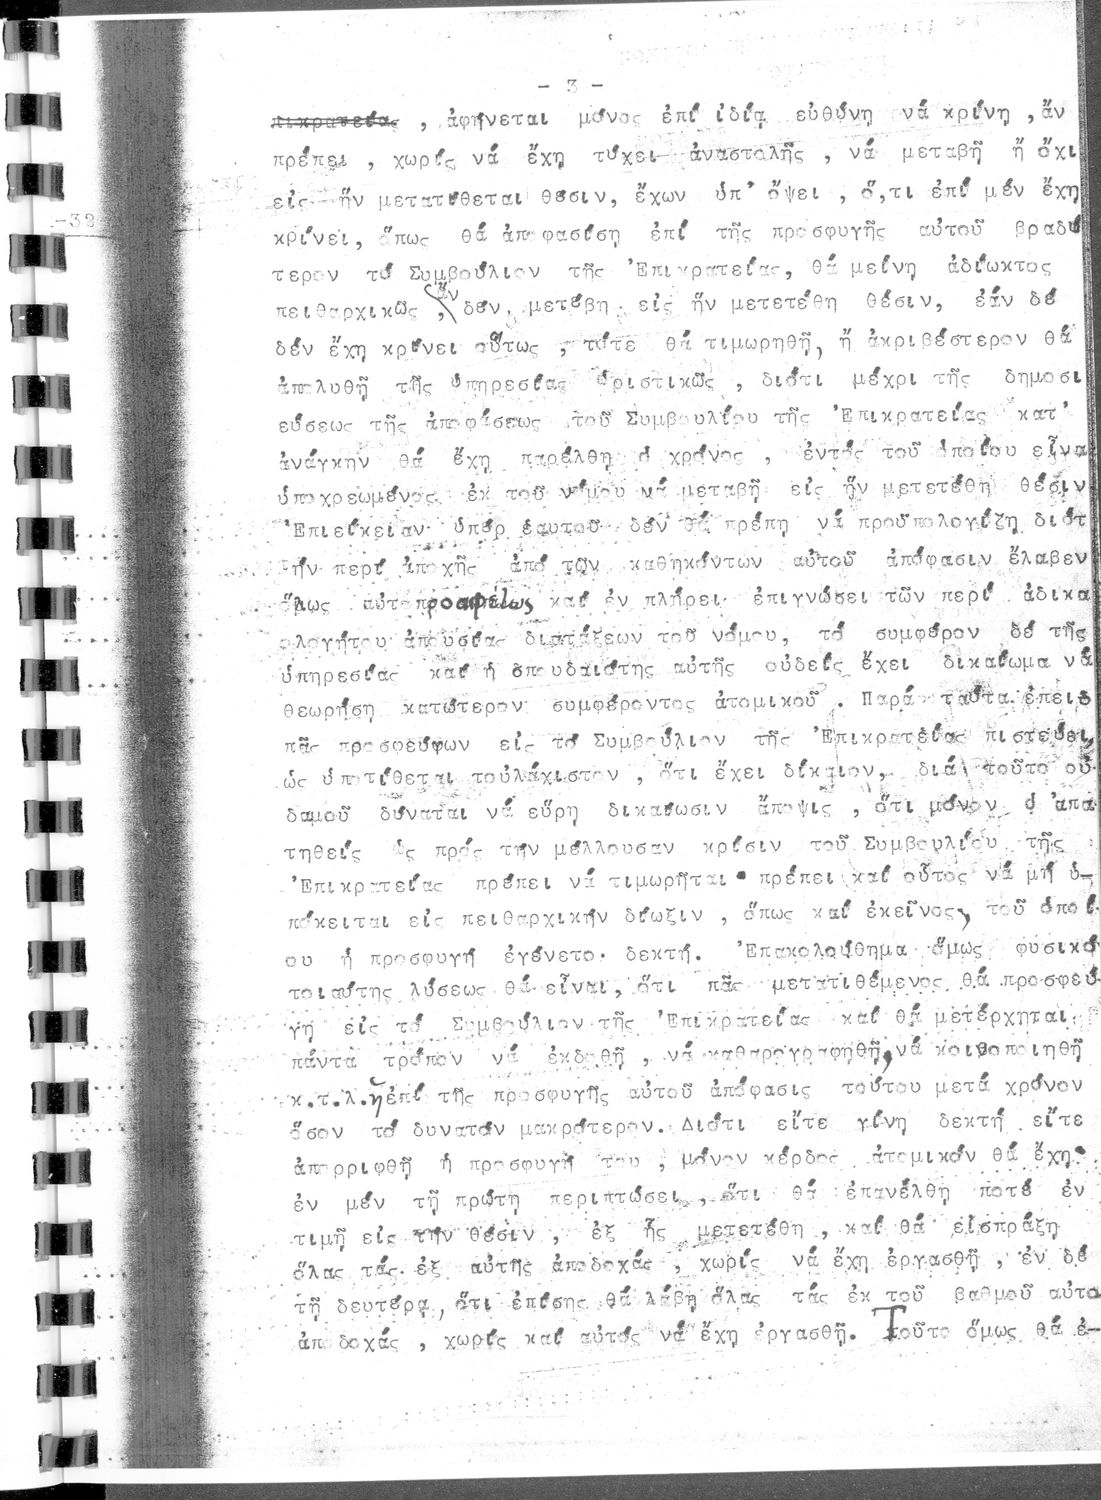 - 3 -
πικρατείας , ἀφήνεται μόνος ἐπί ἰδίᾳ εὐθύνῃ νά κρίνῃ ,ἄν
πρέπει , χωρίς νά ἔχῃ τύχει ἀναστολῆς , νά μεταβῇ ἤ ὄχι
εἰς ἥν μετατίθεται θέσιν, ἔχων ὑπ' ὄψει , ὅ,τι ἐπί μέν ἔχῃ
-38
κρίνει, ὅπως θά ἀποφασίσῃ ἐπί τῆς προσφυγῆς αὐτοῦ βραδύ
τερον τό Συμβούλιον τῆς Ἐπικρατείας, θά μείνῃ ἀδίωκτος
πειθαρχικῶς , ἄν δέν μετέβη εἰς ἥν μετετέθη θέσιν, ἐάν δέ
δέν ἔχῃ κρίνει οὕτως , τότε θά τιμωρηθῇ, ἤ ἀκριβέστερον θά
ἀπολυθῇ τῆς ὑπηρεσίας ὁριστικῶς , διότι μέχρι τῆς δημοσι
εύσεως τῆς ἀποφάσεως τοῦ Συμβουλίου τῆς Ἐπικρατείας κατ'
ἀνάγκην θά ἔχῃ παρέλθῃ ὁ χρόνος , ἐντός τοῦ ὁποίου εἶνα
ὑποχρεωμένος ἐκ τοῦ νόμου νά μεταβῇ εἰς ἥν μετετέθη θέσιν
Ἐπιείκειαν ὑπέρ ἑαυτοῦ δέν θά πρέπῃ νά προϋπολογίζῃ διότ
τήν περί ἀποχῆς ἀπό τῶν καθηκόντων αὐτοῦ ἀπόφασιν ἔλαβεν
ὅμως αὐτοπροαιρέτως καί ἐν πλήρει ἐπιγνώσει τῶν περί ἀδικα
ολογήτου ἀπουσίας διατάξεων τοῦ νόμου, τό συμφέρον δέ τῆς
ὑπηρεσίας καί ἡ σπουδαιότης αὐτῆς οὐδείς ἔχει δικαίωμα νά
θεωρήσῃ κατώτερον συμφέροντος ἀτομικοῦ . Παρά ταῦτα ἐπειδ
πᾶς προσφεύγων εἰς τό Συμβούλιον τῆς Ἐπικρατείας πιστεύει,
ὡς ὑποτίθεται τοὐλάχιστον , ὅτι ἔχει δίκαιον, διά τοῦτο οὐ
δαμοῦ δύναται νά εὕρῃ δικαίωσιν ἄποψις , ὅτι μόνον ὁ ἀπα
τηθείς ὡς πρός τήν μέλλουσαν κρίσιν τοῦ Συμβουλίου τῆς
Ἐπικρατείας πρέπει νά τιμωρῆται · πρέπει καί οὗτος νά μή ὑ-
πόκειται εἰς πειθαρχικήν δίωξιν , ὅπως καί ἐκεῖνος, τοῦ ὁποί
ου ἡ προσφυγή ἐγένετο δεκτή. Ἐπακολούθημα ὅμως φυσικό
τοιαύτης λύσεως θά εἶναι, ὅτι πᾶς μετατιθέμενος θά προσφεύ
γῃ εἰς τό Συμβούλιον τῆς Ἐπικρατείας καί θά μετέρχηται
πάντα τρόπον νά ἐκδοθῇ , νά καθαρογραφηθῇ, νά κοινοποιηθῇ
κ.τ.λ. ἡ ἐπί τῆς προσφυγῆς αὐτοῦ ἀπόφασις τούτου μετά χρόνον
ὅσον τό δυνατόν μακρότερον. Διότι εἴτε γίνῃ δεκτή εἴτε
ἀπορριφθῇ ἡ προσφυγή του , μόνον κέρδος ἀτομικόν θά ἔχῃ·
ἐν μέν τῇ πρώτῃ περιπτώσει , ὅτι θά ἐπανέλθῃ ποτέ ἐν
τιμῇ εἰς τήν θέσιν , ἐξ ἧς μετετέθη , καί θά εἰσπράξῃ
ὅλας τάς ἐξ αὐτῆς ἀποδοχάς , χωρίς νά ἔχῃ ἐργασθῇ , ἐν δέ
τῇ δευτέρᾳ, ὅτι ἐπίσης θά λάβῃ ὅλας τάς ἐκ τοῦ βαθμοῦ αὐτο
ἀποδοχάς , χωρίς καί αὐτός νά ἔχῃ ἐργασθῇ. Τοῦτο ὅμως θά ἐ-